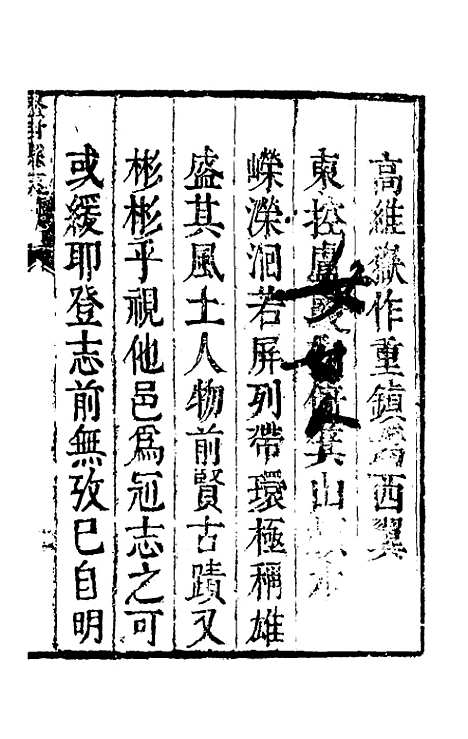 高維嶽作重鎮爲西翼
東控山
嶸濴洄若屏列帶環極稱雄
盛其風土人物前賢古蹟又
彬彬乎視他邑爲冠志之可
或緩耶登志前無攷已自明
登封縣志